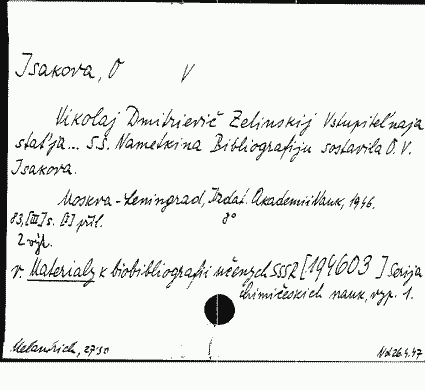 Isakova, O V
Nikolaj Dmitrievič Zelinskij Vstupitel'naja
stat'ja... S.S. Nametkina Bibliografiju sostavila O.V.
Isakova.
Moskva-Leningrad, Izdat. Akademii Nauk, 1946.
83, [III] s. [I] příl. 8°
2 výt.
v. Materialy k biobibliografii učenych SSSR [194603] Serija
chimičeskich nauk, vyp. 1.
Melantrich, 27'50